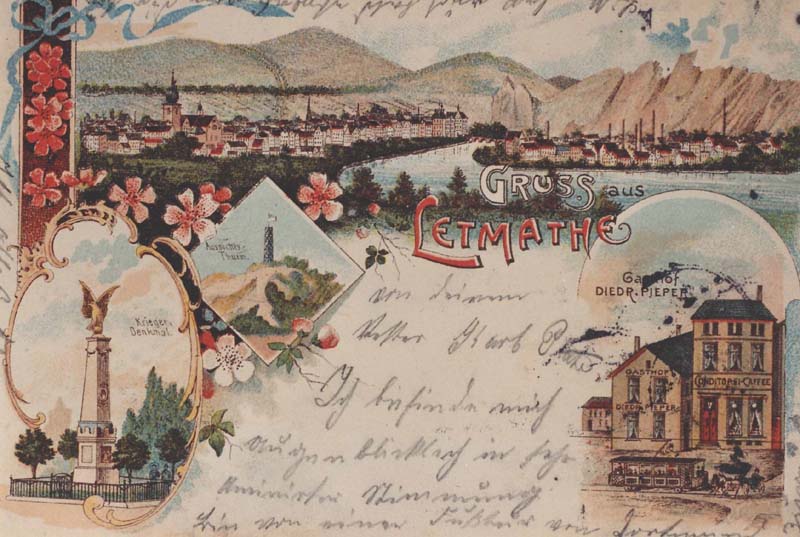 GRUSS aus
LETMATHE
Aussichts-
Thurm.
Krieger-
Denkmal.
Gasthof
DIEDR. PIEPER
GASTHOF
DIEDR. PIEPER
CONDITOREI-CAFFEE
von deinem
Vetter Karl
Ich befinde mich
augenblicklich in sehr
animirter Stimmung
bin von einer Fußtour von Dortmund